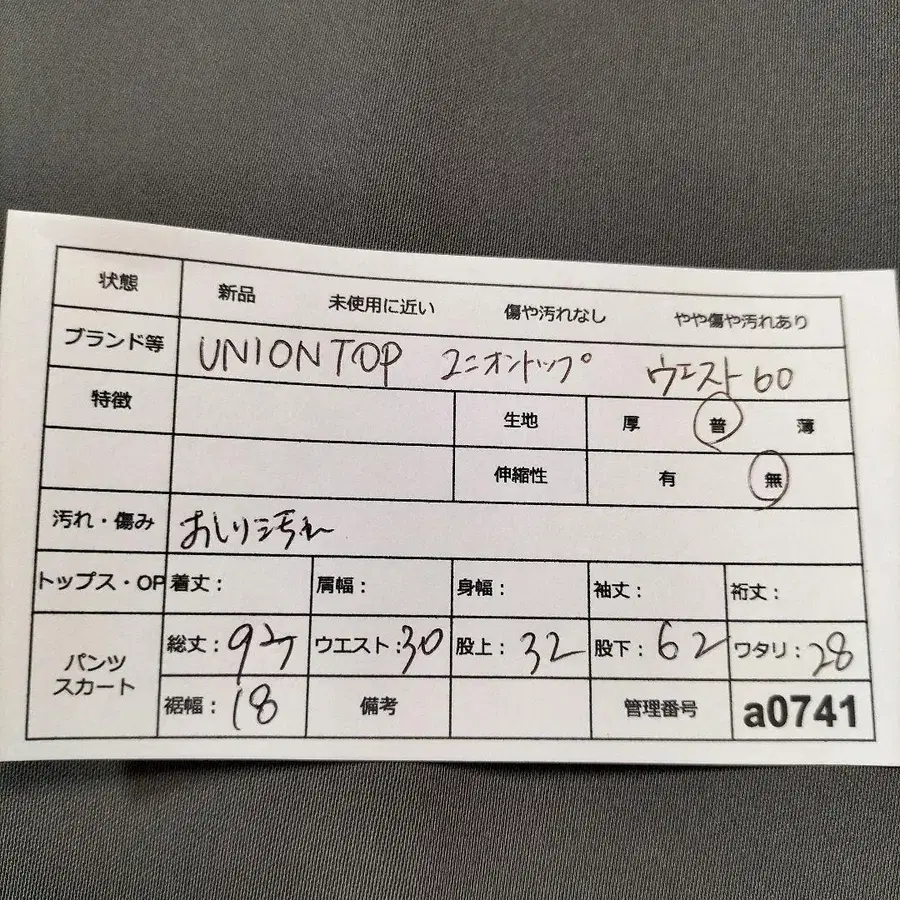 状態 新品 未使用に近い 傷や汚れなし やや傷や汚れあり
ブランド等 UNIONTOP ユニオントップ ウエスト60
特徴 生地 厚 普 薄
伸縮性 有 無
汚れ・傷み おしり汚れ
トップス・OP 着丈: 肩幅: 身幅: 袖丈: 裄丈:
パンツ スカート 総丈: ウエスト:30 股上:32 股下:62 ワタリ:28
裾幅:18 備考 管理番号 a0741